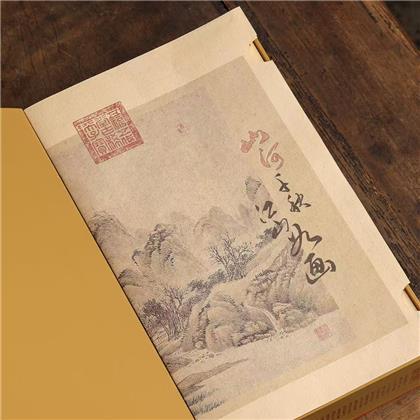 山河千秋
江山如画